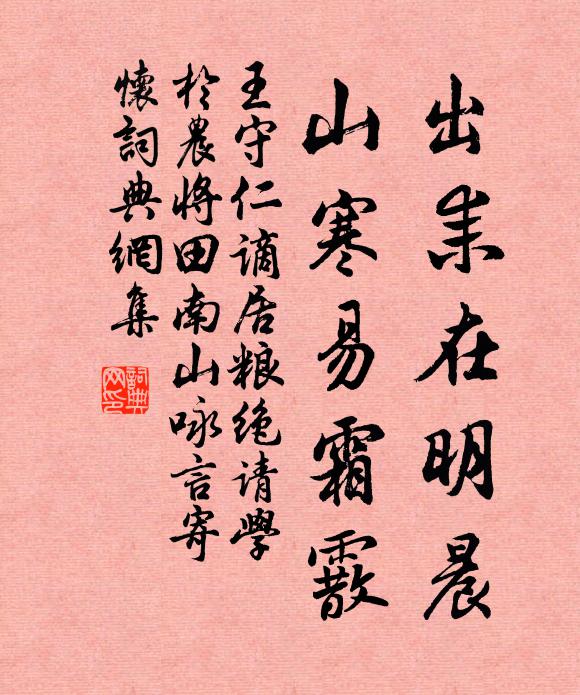 出耒在明晨
山寒易霜霰
王守仁谪居粮绝请学
於農将田南山咏言寄
懷詞典網集
詞典網印